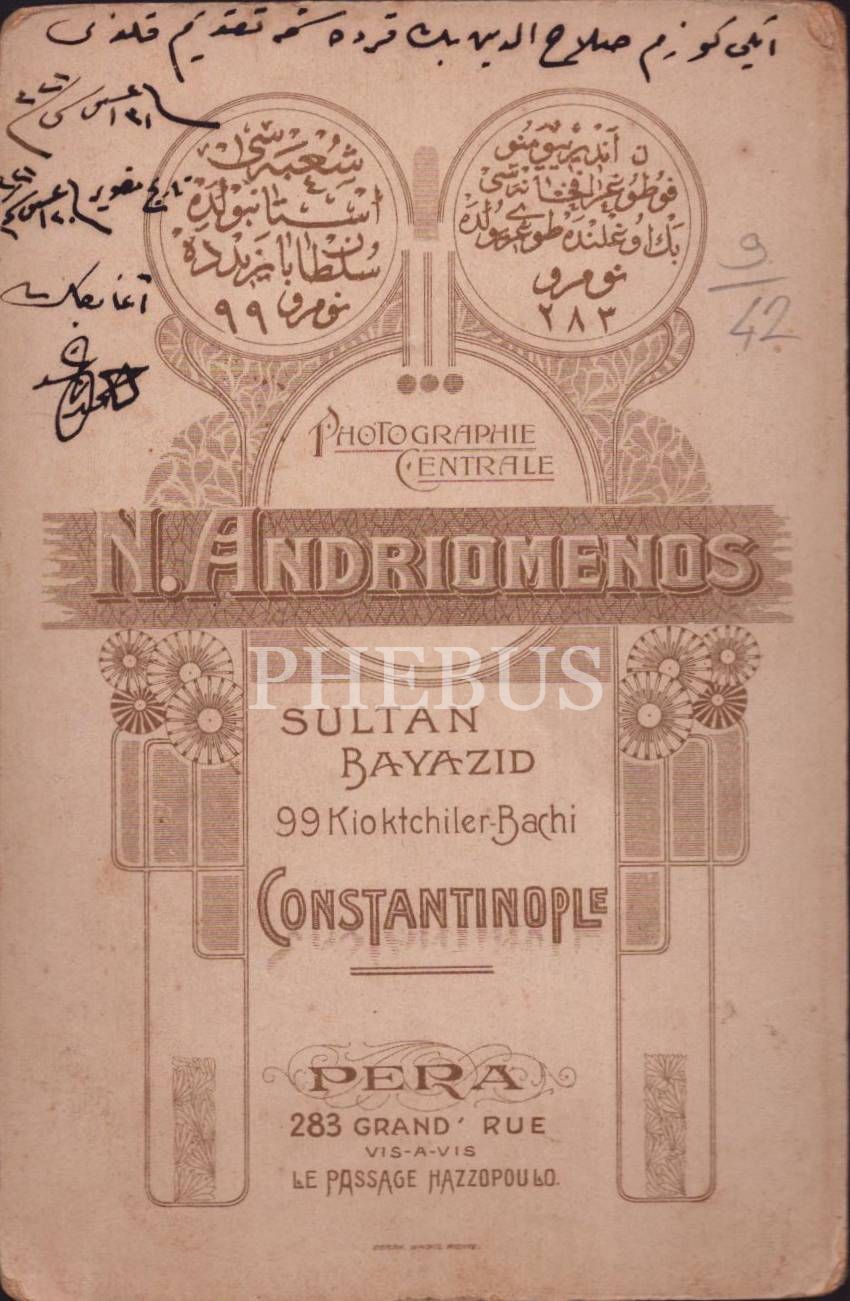 ایكی كوزم صلاح الدین بك قرده شمه تقدیم قلندی
تاریخ تصویر
شعبه سی
استانبولده
سلطان بایزیدده
نومرو ٩٩
ن آندریومنو
فوطوغرافخانه سی
بك اوغلنده طوغری یولده
نومرو
٢٨٣
9
42
PHOTOGRAPHIE
CENTRALE
N. ANDRIOMENOS
PHEBUS
SULTAN
BAYAZID
99 Kioktchiler-Bachi
CONSTANTINOPLE
PERA
283 GRAND' RUE
VIS-A-VIS
LE PASSAGE HAZZOPOULO.